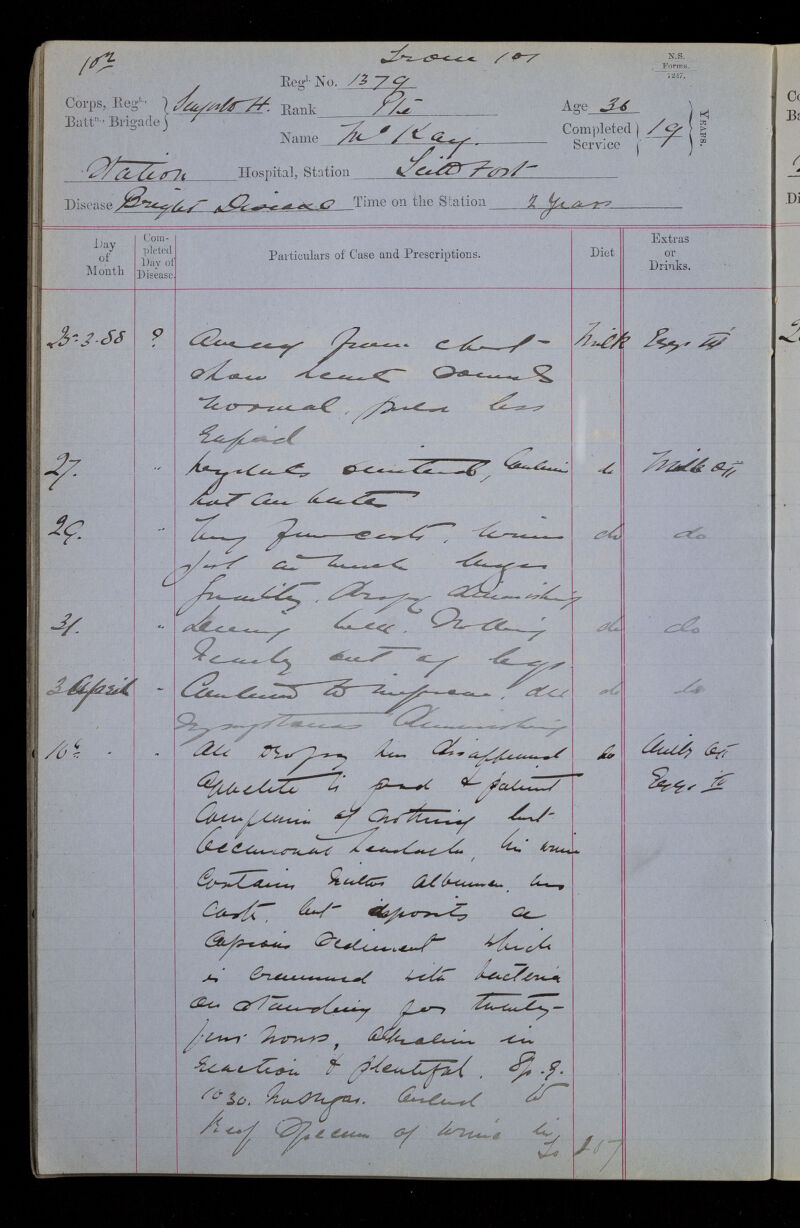 102
From 101
N.S.
Forms.
1247.
Regl. No. 1379
Corps, Regt. Battn. Brigade Seaforth H. Rank Pte Age 36
Name McKay. Completed Service 19 YEARS.
Station Hospital, Station Leith Fort
Disease Bright Disease Time on the Station 2 Years
Day of Month
Completed Day of Disease.
Particulars of Case and Prescriptions.
Diet
Extras or Drinks.
25-3-88 ? Away from chest - Milk Eggs iii
show heart sounds
normal. pulse less
rapid
27. " headache, Continue do Milk Oii
hot air baths
29. " Very few casts. Urine do do
just as much larger
quantity. Dropsy diminishing
31. " Seeming well. Swelling do do
Nearly out of legs
3 April " Continues to improve. All do do
symptoms diminishing
10th " All dropsy has disappeared do Milk Oii
Appetite is good & patient Eggs iv
Complains of nothing but
Occasional headache, his urine
Contains neither albumen, nor
casts, but deposits a
copious sediment which
is crammed with bacteria
on standing for twenty-
four hours, alkaline in
reaction & plentiful. Sp. g.
1030. No sugar. Ordered to
Keep Specimen of urine
To 107